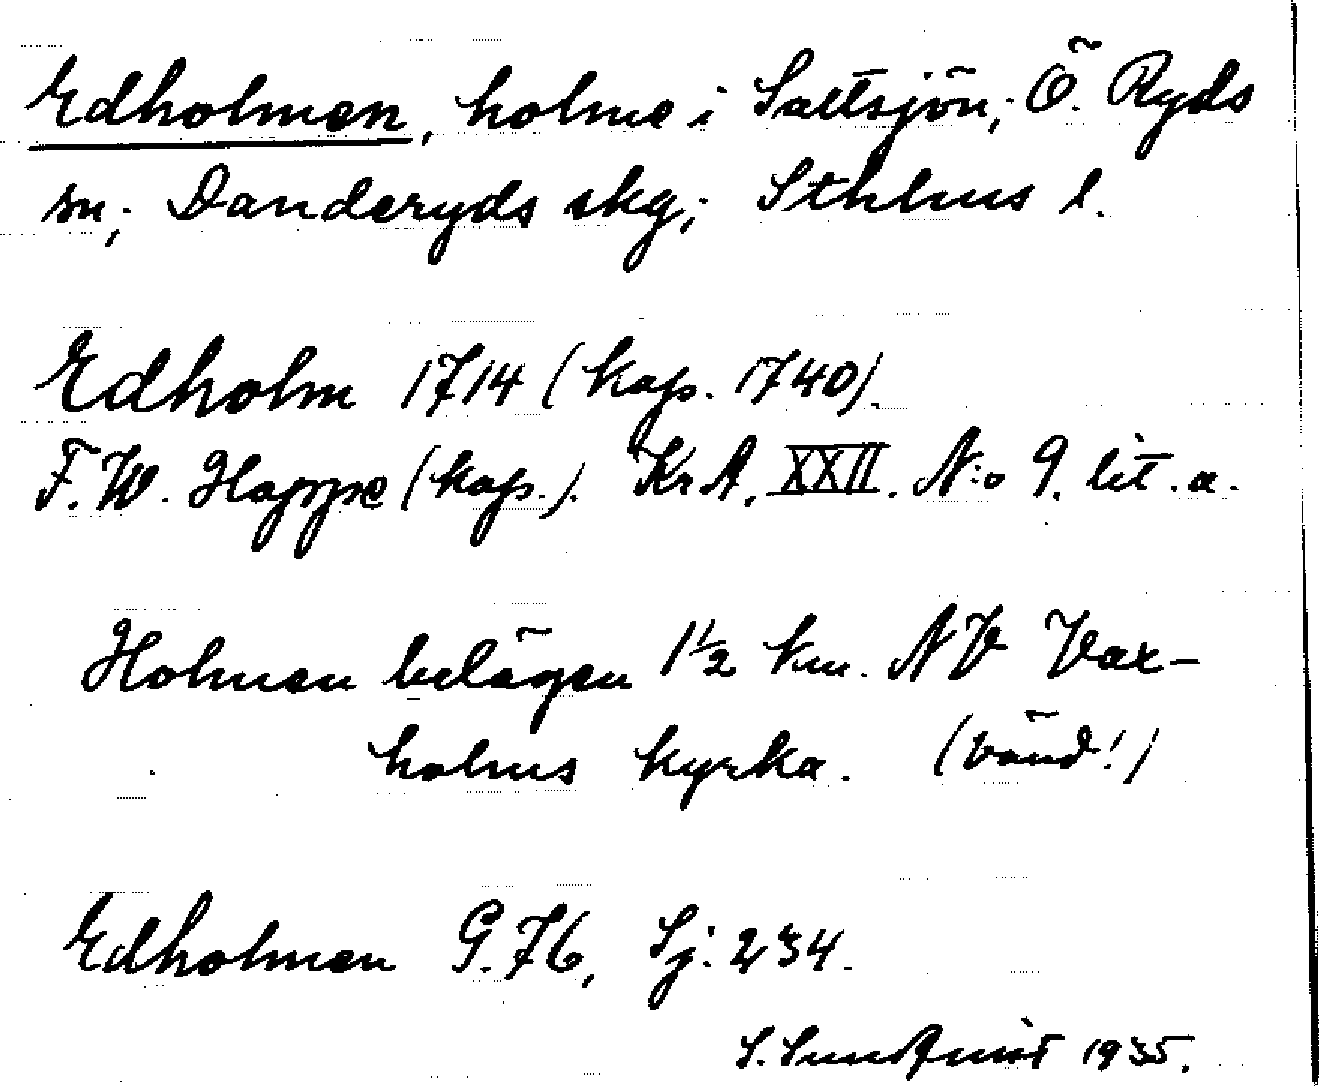 Edholmen, holme i Saltsjön; Ö. Ryds
sn; Danderyds skg; Sthlms l.
Edholm 1714 (kop. 1740).
F. W. Happe (kop.). Kr A. XXII. N:o 9. lit. a.
Holmen belägen 1 1/2 km. NV Vax-
holms kyrka. (vänd!)
Edholmen G. 76, Sj: 234.
S. Sundquist 1935.